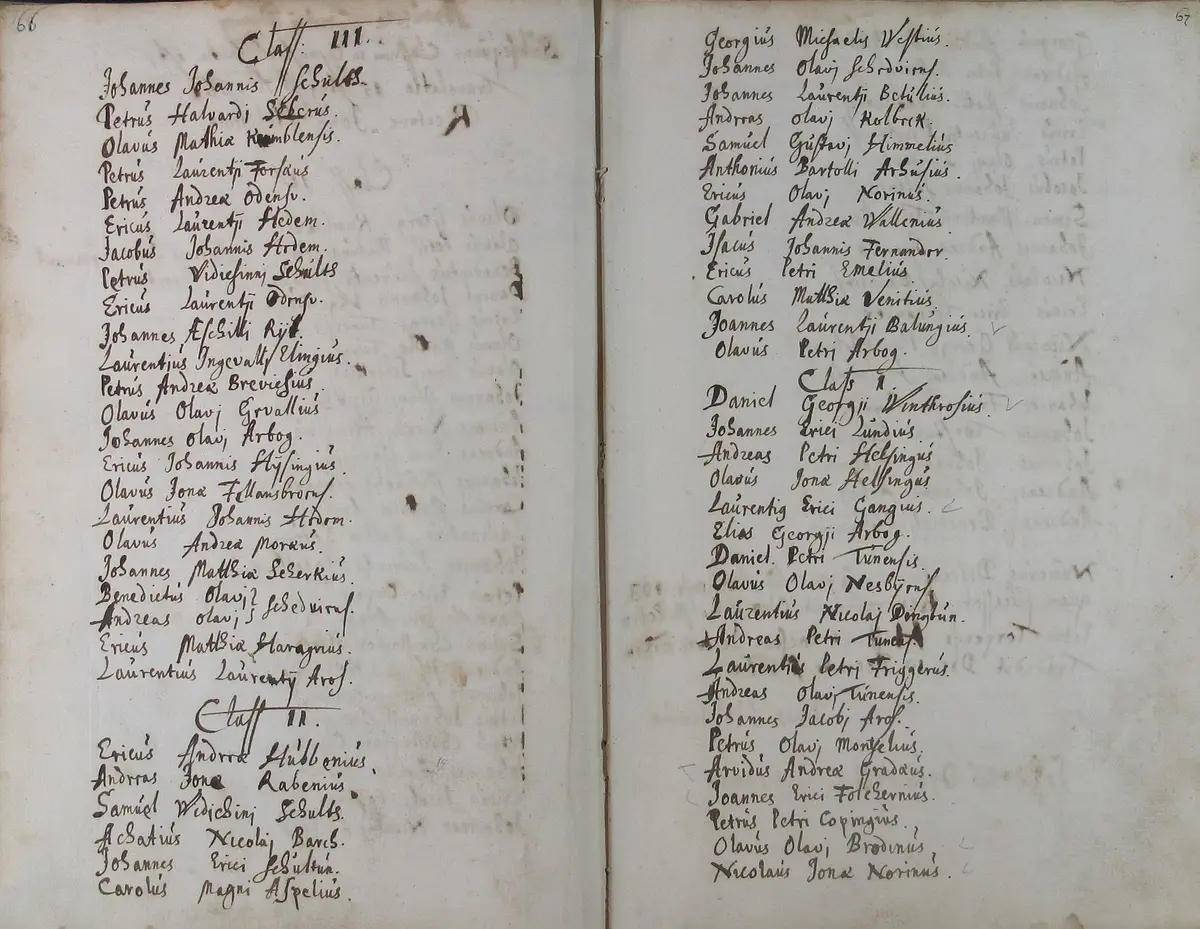 68
Class. III.
Johannes Johannis Schults.
Petrus Halvardj
Olavus Mathiæ Kumblensis.
Petrus Laurentji Forskus
Petrus Andreæ Odensv.
Ericus Laurentji Hedem.
Jacobus Johannis Hedem.
Petrus Vidichinnj Schults
Ericus Laurentji Odensv.
Johannes Æschilli Ryt.
Laurentius Ingevallj Elingius.
Petrus Andreæ Breviesius
Olavus Olavj Gevallius
Johannes olavj Arbog.
Ericus Johannis Hysingius.
Olavus Jonæ Fellansbroens.
Laurentius Johannis Hedem.
Olavus Andreæ Moræus.
Johannes Matthiæ Scherkius.
Benedictus Olavj
Andreas olavj Schedviens.
Ericus Matthiæ Haragrius.
Laurentius Laurentij Aros.
Class II.
Ericus Andreæ Hubbenius.
Andreas Jonæ Rabenius
Samuel Widichinj Schults.
Achatius Nicolaj Barch.
Johannes Erici Schultun.
Carolus Magni Aspelius.
67
Georgius Michaelis Westius.
Johannes Olavj Schedviens.
Johannes Laurentji Betulius.
Andreas olavj Kolbeck.
Samuel Gustavj Himmelius
Anthonius Bartolli Arhusius.
Ericus Olavj Norinus.
Gabriel Andreæ Wallenius.
Isacus Johannis Fernander.
Ericus Petri Emelius
Carolus Matthiæ Venitius.
Joannes Laurentji Balungius.
Olavus Petri Arbog.
Class I.
Daniel Georgji Winthrosius
Johannes Erici Lundius.
Andreas Petri Helsingus
Olavus Jonæ Helsingus
Laurentig Erici Gangius.
Elias Georgji Arbog.
Daniel. Petri Tunensis.
Olavus Olavj Nesbyens
Laurentius Nicolaj Dingtun.
Andreas Petri Tunens.
Laurentius Petri Friggerus.
Andreas Olavj Tunensis.
Johannes Jacobj Aros.
Petrus Olavj Montelius.
Arvidus Andreæ Gradæus.
Joannes Erici Folchernius.
Petrus Petri Copingius.
Olavus Olavj Brodinus
Nicolaus Jonæ Norinus.